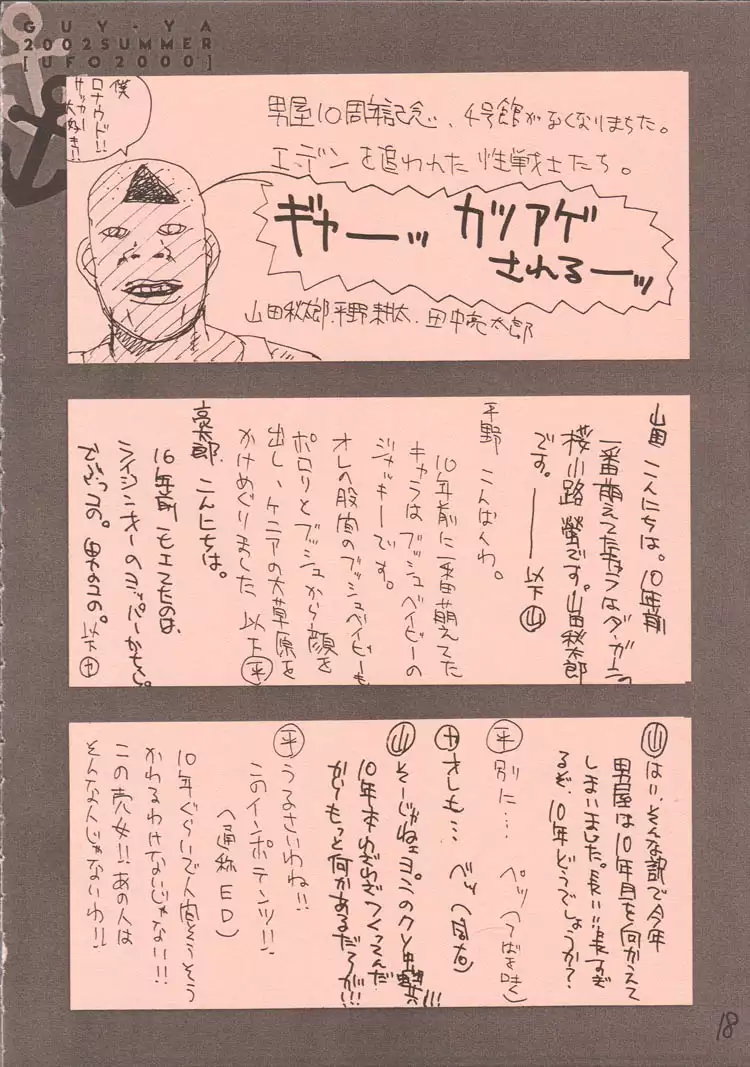 GUY-YA
2002SUMMER
[UFO2000]
僕
ロナウド!!
サッカー
大好き!!
男屋10周年記念、4号館がなくなりまちた。
エデンを追われた性戦士たち。
ギャーーッ カツアゲ
されるーーッ
山田秋太郎.平野耕太.田中亮太郎
山田 こんにちは。10年前
一番萌えてたキャラはダ・ガーンの
桜小路螢です。山田秋太郎
です。――以下㊤山
平野 こんばくわ。
10年前に一番萌えてた
キャラはブッシュベイビーの
ジャッキーです。
オレの股間のブッシュベイビーも
ポロリとブッシュから顔を
出し、ケニアの大草原を
かけめぐりました 以下平
亮太郎 こんにちは。
16年前モエてたのは、
ライジンオーの
でぶっつの。男のコの。以下 田
山 はい、そんな訳で今年
男屋は10年目を向かえて
しまいました。長い!!長すぎ
るぞ、10年どうでしょうか?
平 別に… ペッ(つばを吐く)
オレも… ペッ
山 そーじゃねェ
10年本わざわざつくってんだ
からもっと何かあるだろが!!!
平 うるさいわね!!
このインポテンツ!!
(通称ED)
10年ぐらいで人間そうそう
かわるわけないじゃない!!
この売女!!あの人は
そんな人じゃないわ!!
18